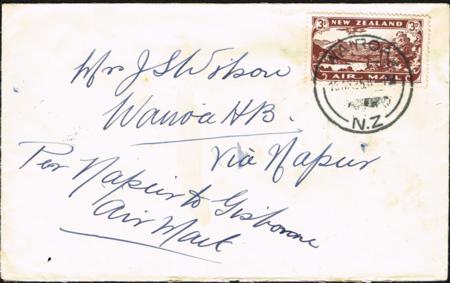 3D NEW ZEALAND 3D
AIR MAIL
WAIROA
N.Z
Mrs J S Wotson
Wairoa H.B.
Via Napier
Per Napier to Gisborne
Air Mail